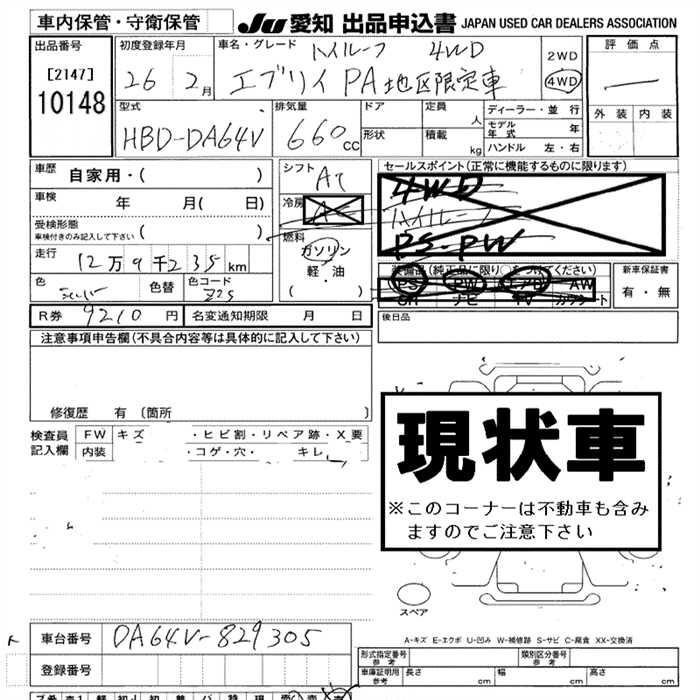 車内保管・守衛保管
JU 愛知 出品申込書 JAPAN USED CAR DEALERS ASSOCIATION
出品番号
[2147]
10148
初度登録年月
26年 2月
車名・グレード ハイルーフ 4WD
エブリイ PA 地区限定車
2WD
4WD
評価点
外装 内装
型式
HBD-DA64V
排気量
660cc
ドア
形状
定員
人
積載
kg
ディーラー・並行
モデル年式 年
ハンドル 左・右
車歴 自家用・( )
車検 年 月( 日)
受検形態
車検付きのみ記入して下さい ( )
走行 12万9千235km
色 シルバー
色替
色コード Z2S
シフト AT
冷房
燃料
ガソリン
軽・油
( ・ )
セールスポイント(正常に機能するものに限ります)
4WD
ハイルーフ
PS・PW
装備品(純正品に限り○をつけてください)
PS PW エアB AW
SR ナビ TV カワシート
新車保証書
有・無
R券 9210円
名変通知期限 月 日
後日品
注意事項申告欄(不具合内容等は具体的に記入して下さい)
修復歴 有 (箇所 )
検査員
記入欄
FW キズ ・ヒビ割・リペア跡・X要
内装 ・コゲ・穴・ キレ
現状車
※このコーナーは不動車も含み
ますのでご注意下さい
スペア
A-キズ E-エクボ U-凹み W-補修跡 S-サビ C-腐食 XX-交換済
車台番号 DA64V-829305
登録番号
形式指定番号
参考
類別区分番号
参考
車庫証明用
参考
長さ cm
幅 cm
高さ cm